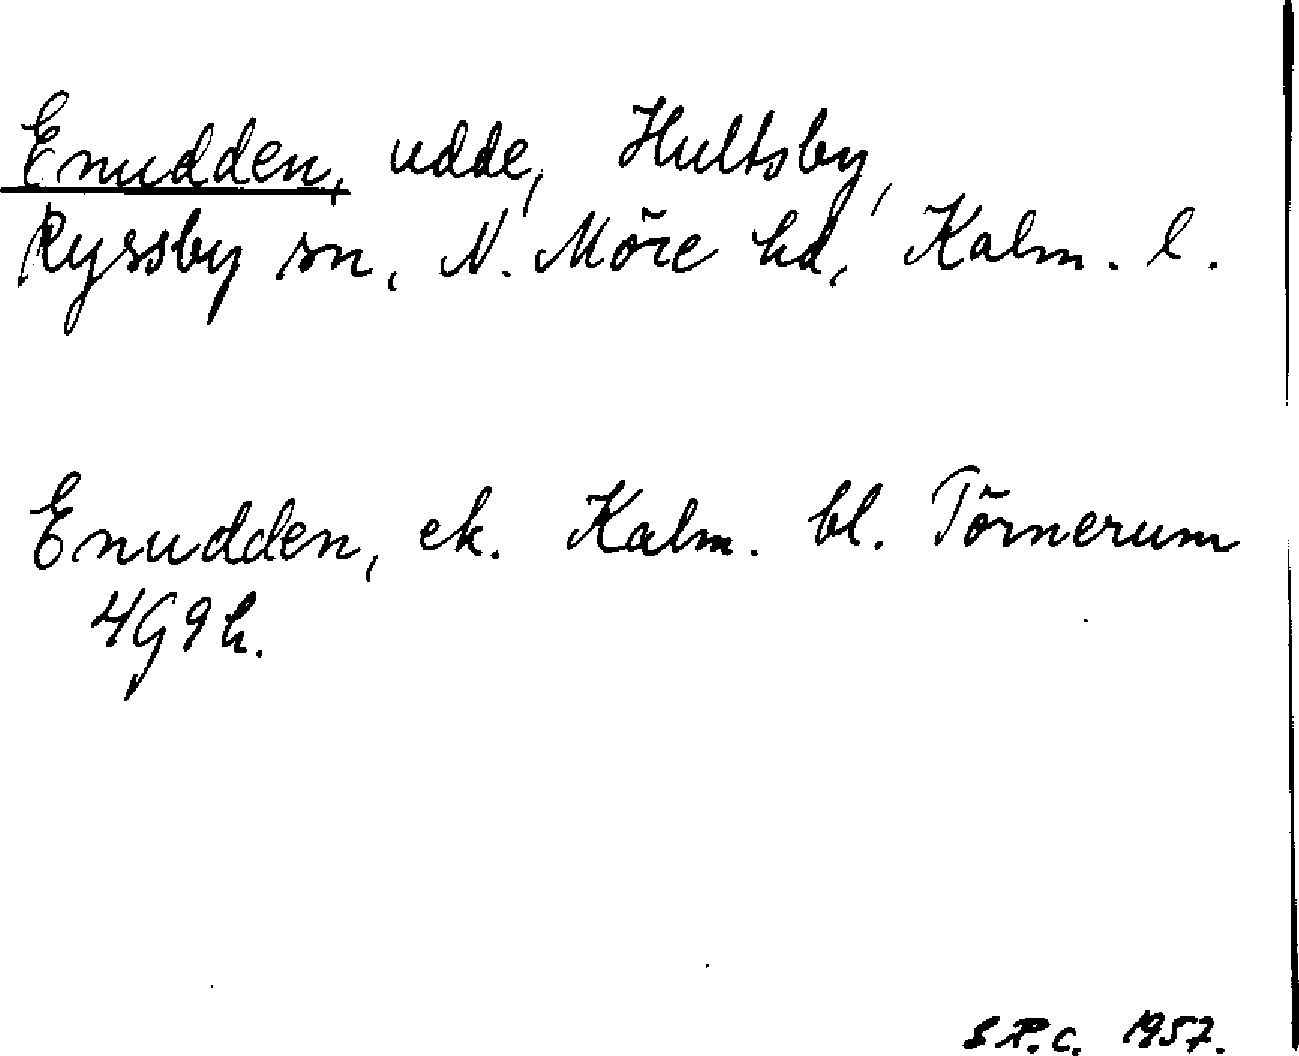 Enudden, udde, Hultsby,
Ryssby sn, N. Möre hd, Kalm. l.
Enudden, ek. Kalm. bl. Törnerum
4G9h.
S.P.C. 1957.